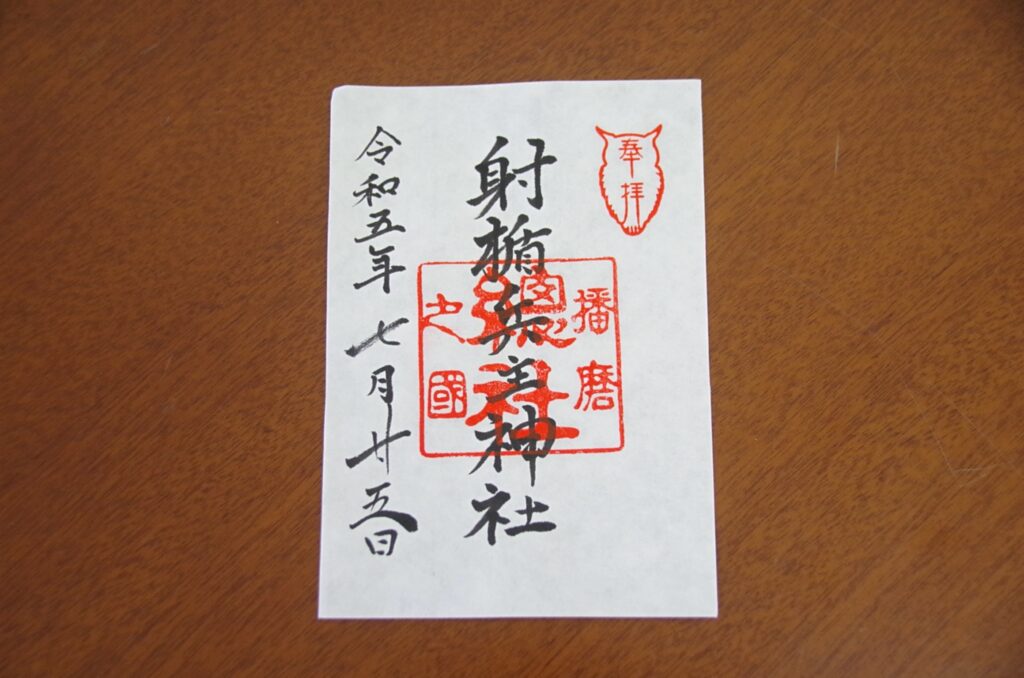 奉拝
射楯兵主神社
播磨
總社
之國
令和五年七月廿五日